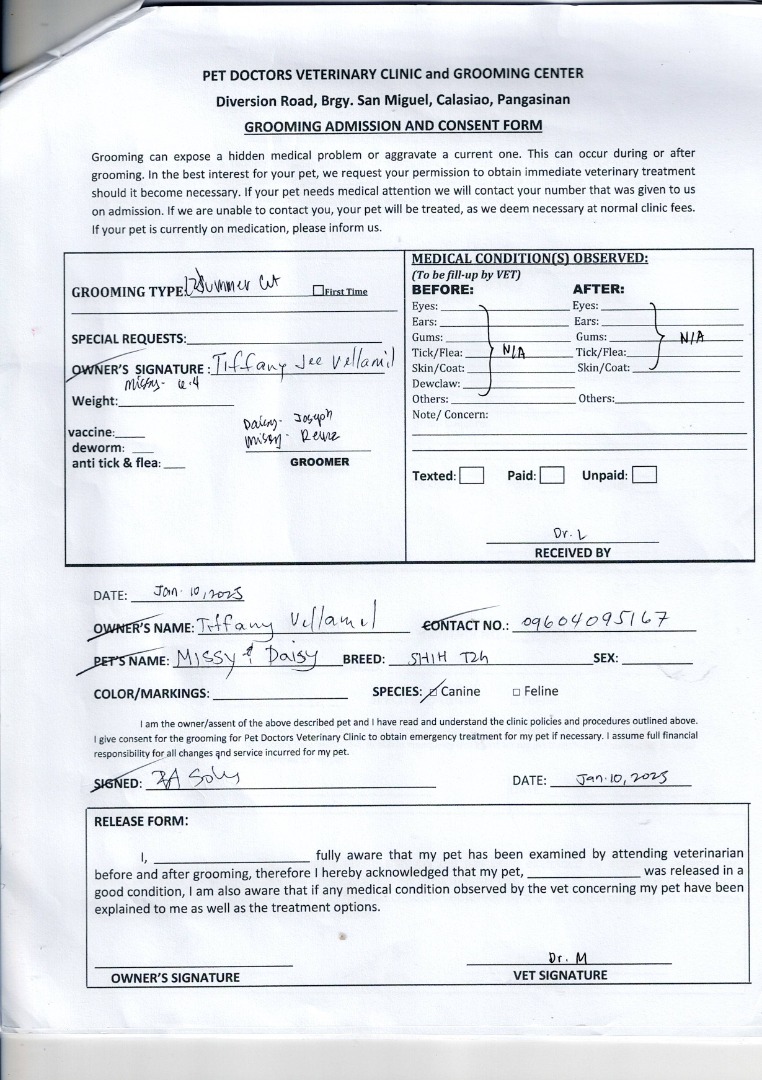 PET DOCTORS VETERINARY CLINIC and GROOMING CENTER
Diversion Road, Brgy. San Miguel, Calasiao, Pangasinan
GROOMING ADMISSION AND CONSENT FORM
Grooming can expose a hidden medical problem or aggravate a current one. This can occur during or after
grooming. In the best interest for your pet, we request your permission to obtain immediate veterinary treatment
should it become necessary. If your pet needs medical attention we will contact your number that was given to us
on admission. If we are unable to contact you, your pet will be treated, as we deem necessary at normal clinic fees.
If your pet is currently on medication, please inform us.
GROOMING TYPE: Summer Cut First Time
SPECIAL REQUESTS:
OWNER'S SIGNATURE : Tiffany Jee Vellamil
Missy- 6.4
Weight:
vaccine:
deworm:
anti tick & flea:
Daisy- Joseph
Missy-
GROOMER
MEDICAL CONDITION(S) OBSERVED:
(To be fill-up by VET)
BEFORE: AFTER:
Eyes: Eyes:
Ears: Ears:
Gums: Gums: N/A
Tick/Flea: N/A Tick/Flea:
Skin/Coat: Skin/Coat:
Dewclaw:
Others: Others:
Note/ Concern:
Texted: Paid: Unpaid:
Dr. L
RECEIVED BY
DATE: Jan. 10, 2025
OWNER'S NAME: Tiffany Vellamil CONTACT NO.: 09604095167
PET'S NAME: Missy & Daisy BREED: SHIH Tzh SEX:
COLOR/MARKINGS: SPECIES: Canine Feline
I am the owner/assent of the above described pet and I have read and understand the clinic policies and procedures outlined above.
I give consent for the grooming for Pet Doctors Veterinary Clinic to obtain emergency treatment for my pet if necessary. I assume full financial
responsibility for all changes and service incurred for my pet.
SIGNED: DATE: Jan. 10, 2025
RELEASE FORM:
I, fully aware that my pet has been examined by attending veterinarian
before and after grooming, therefore I hereby acknowledged that my pet, was released in a
good condition, I am also aware that if any medical condition observed by the vet concerning my pet have been
explained to me as well as the treatment options.
Dr. M
OWNER'S SIGNATURE VET SIGNATURE